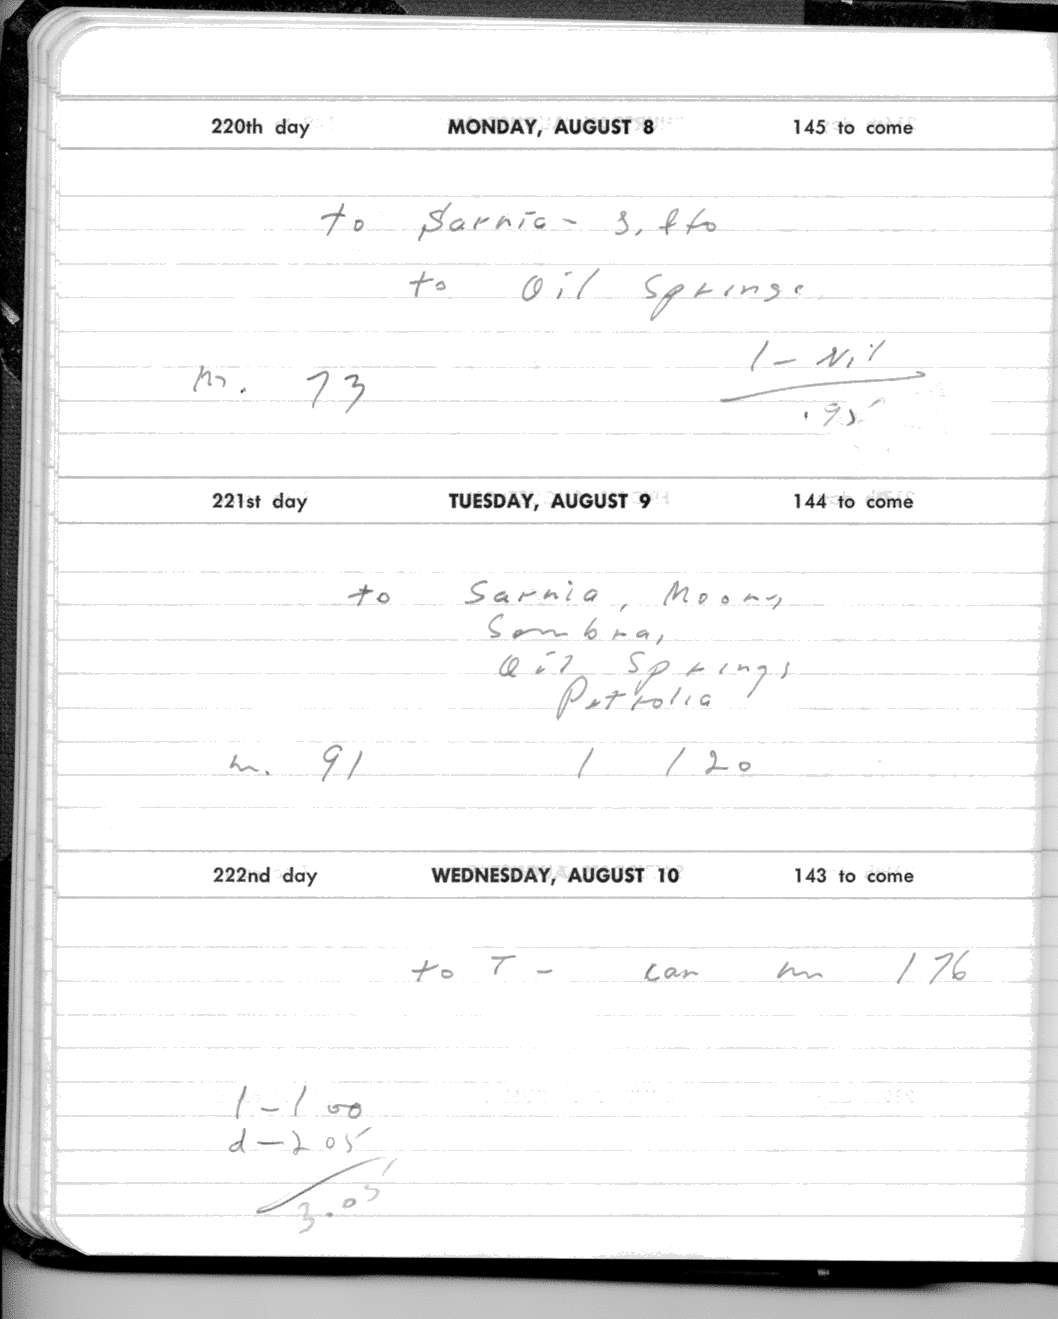 220th day MONDAY, AUGUST 8 145 to come
to Sarnia -
to Oil Springs
1 - Nil
m. 73
.95
221st day TUESDAY, AUGUST 9 144 to come
to Sarnia, Moore,
Sombra,
Oil Springs
Petrolia
m. 91 1 120
222nd day WEDNESDAY, AUGUST 10 143 to come
to T - car m 176
1 - 1 00
d - 2 05
3.05